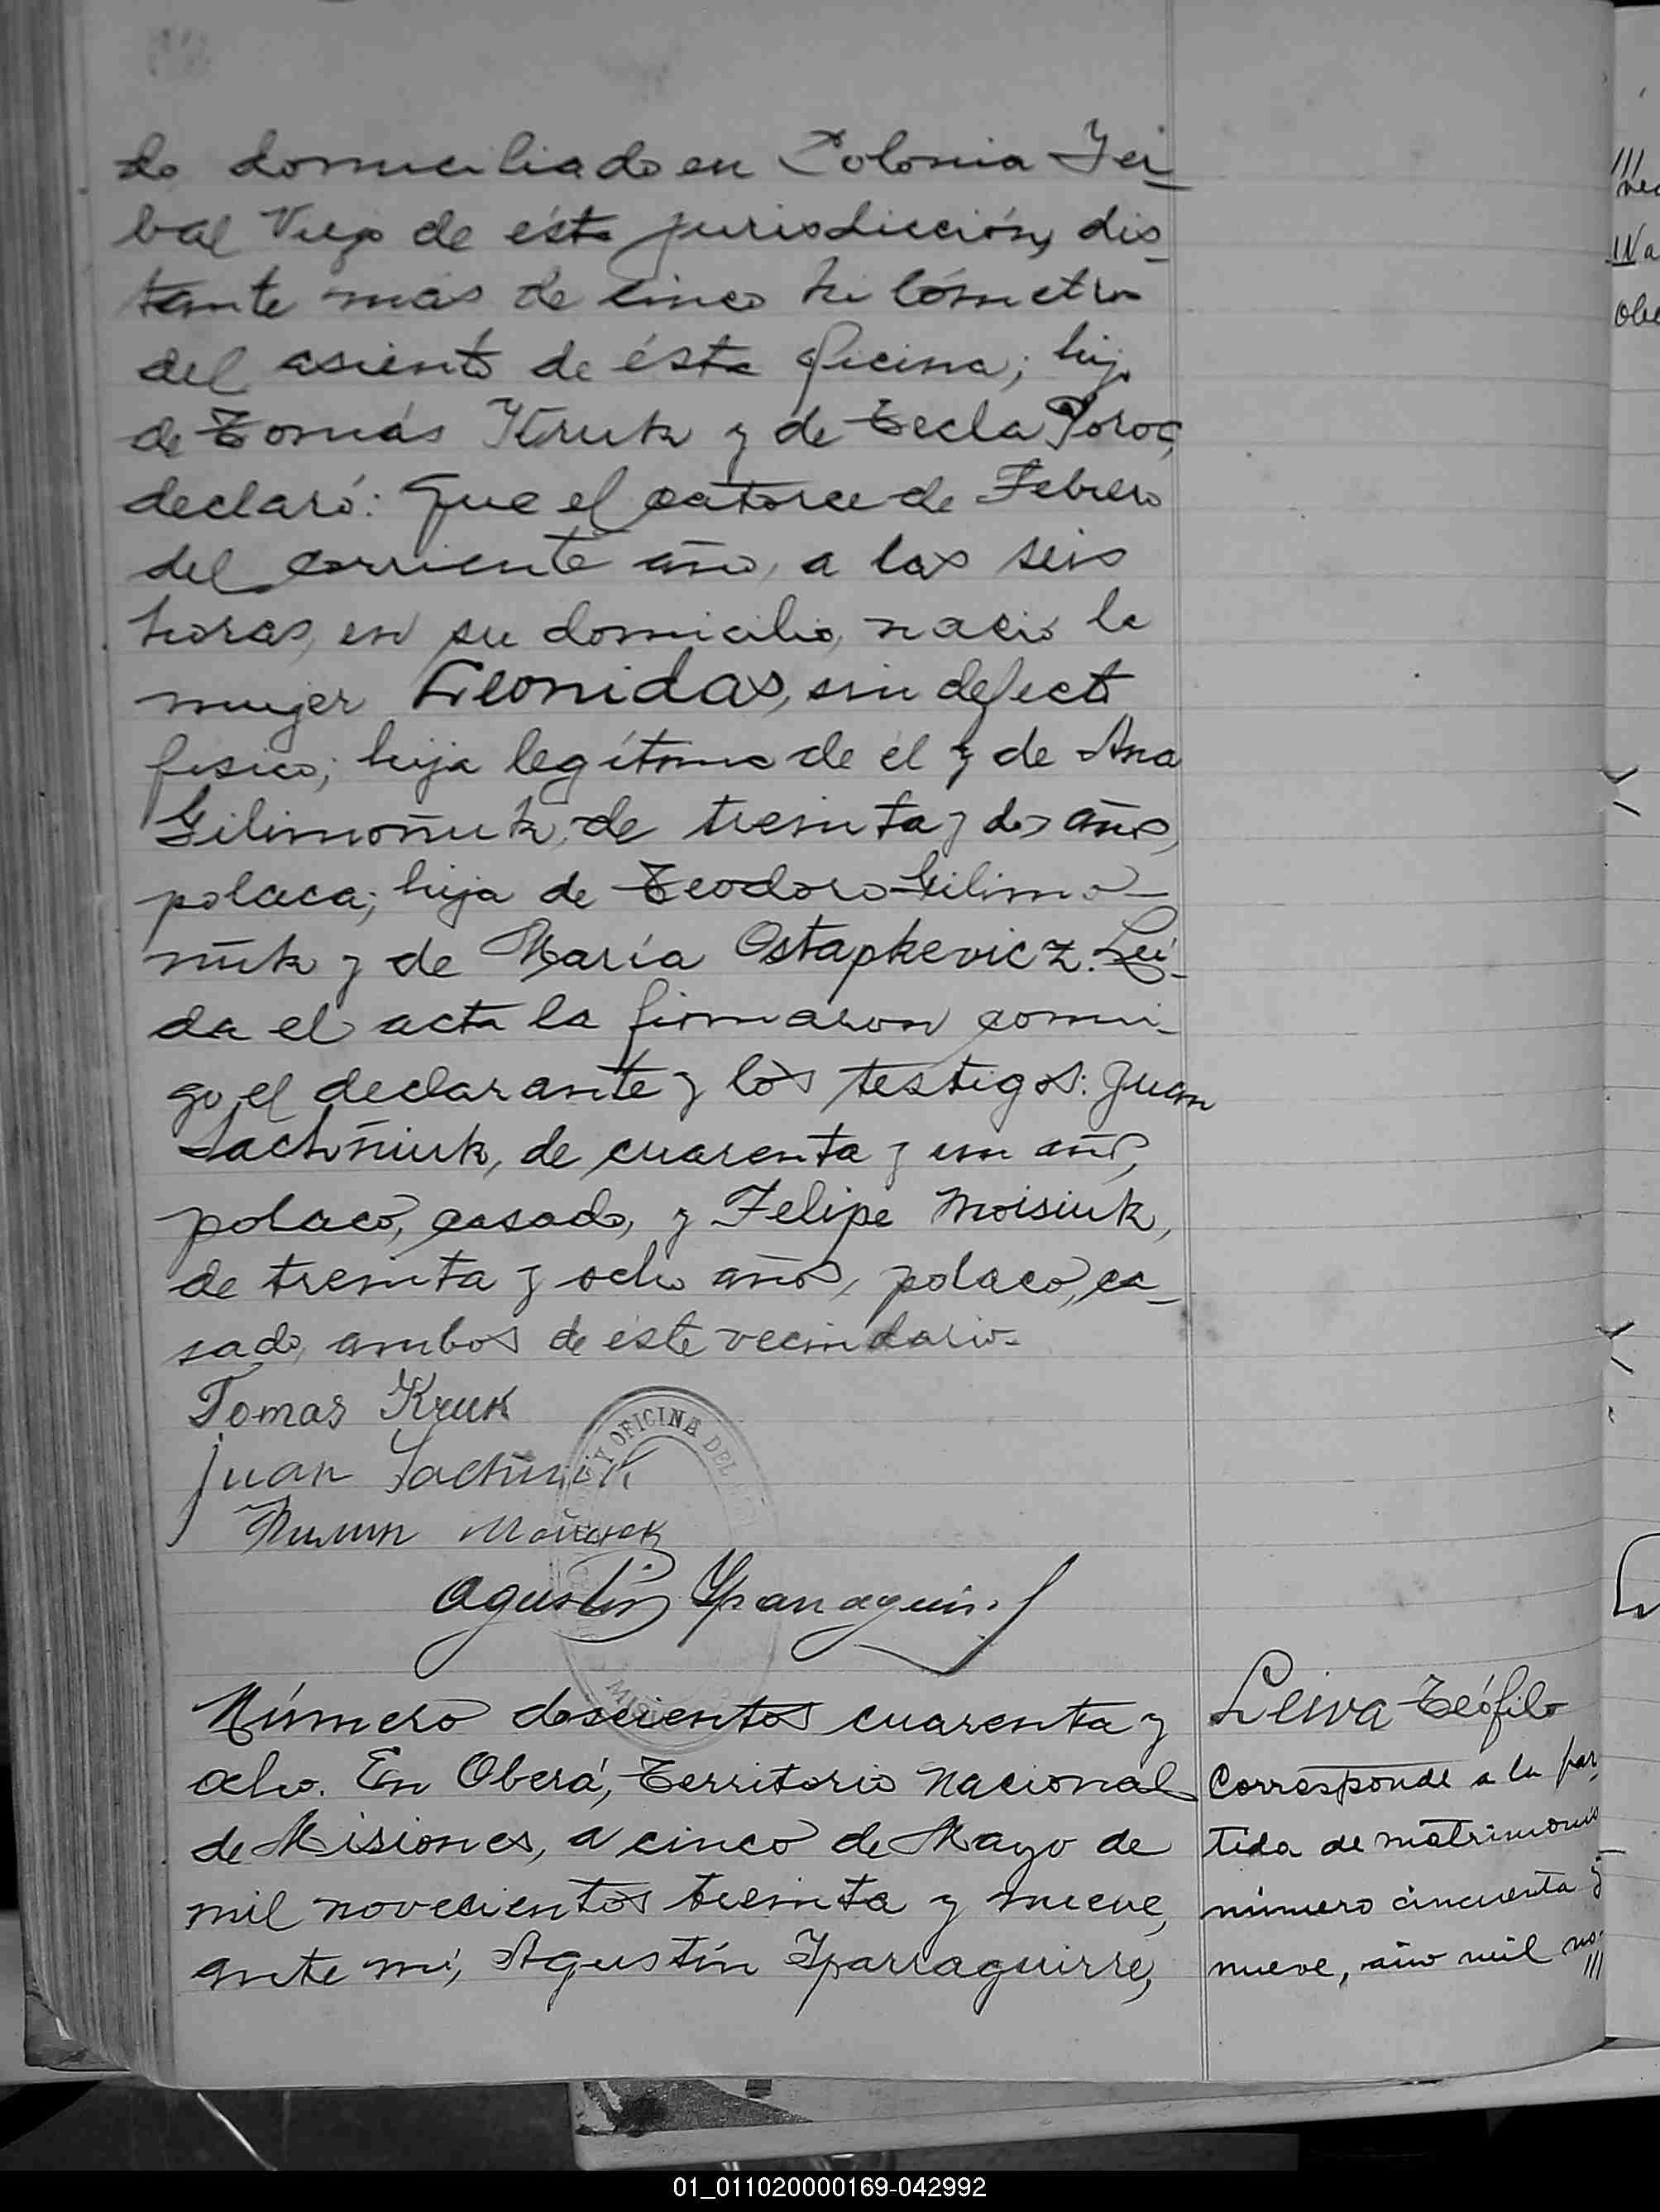 do domiciliado en Colonia Yer_
bal Viejo de ésta jurisdicción, dis_
tante más de cinco kilómetros
del asiento de ésta oficina; hijo
de Tomás Kruk y de Tecla Poroc,
declaró: Que el catorce de Febrero
del corriente año, a las seis
horas, en su domicilio, nació la
mujer Leonidas, sin defecto
físico; hija legítima de él y de Ana
Gilimoñuk, de treinta y dos años,
polaca; hija de Teodoro Gilimo_
ñuk y de María Ostapkevicz. Leí_
da el acta la firmaron conmi_
go el declarante y los testigos: Juan
Sachñiuk, de cuarenta y un años,
polaco, casado, y Felipe Moisiuk,
de treinta y ocho años, polaco, ca_
sado, ambos de éste vecindario.-
Tomas Kruk
Juan Sachñiuk
Agustín Yparraguirre
OFICINA DEL
Número doscientos cuarenta y
ocho. En Oberá, Territorio Nacional
de Misiones, a cinco de Mayo de
mil novecientos treinta y nueve,
ante mí, Agustín Yparraguirre,
Leiva Teófilo
Corresponde a la par_
tida de matrimonio
número cincuenta y
nueve, año mil no_
///
01_011020000169-042992